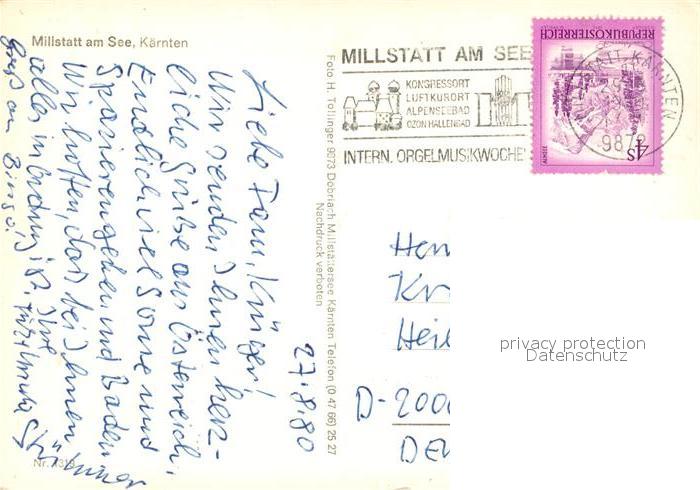 Millstatt am See, Kärnten
27.8.80
Liebe Fam. Krüger!
Wir senden Ihnen herz-
liche Grüße aus Österreich.
Endlich viel Sonne und
Spazierengehen und Baden
Wir hoffen, das bei Ihnen
alles in Ordnung ist. Ihre
Gruß an Bingo!
Nr.
Foto H. Tollinger 9873 Döbriach Millstättersee Kärnten Telefon (0 47 66) 25 27
Nachdruck verboten
MILLSTATT AM SEE
KONGRESSORT
LUFTKURORT
ALPENSEEBAD
OZON HALLENBAD
INTERN. ORGELMUSIKWOCHE
REPUBLIK ÖSTERREICH
ALMSEE
4S
KÄRNTEN
987
Her
Kr
Hei
D-200
DE
privacy protection
Datenschutz